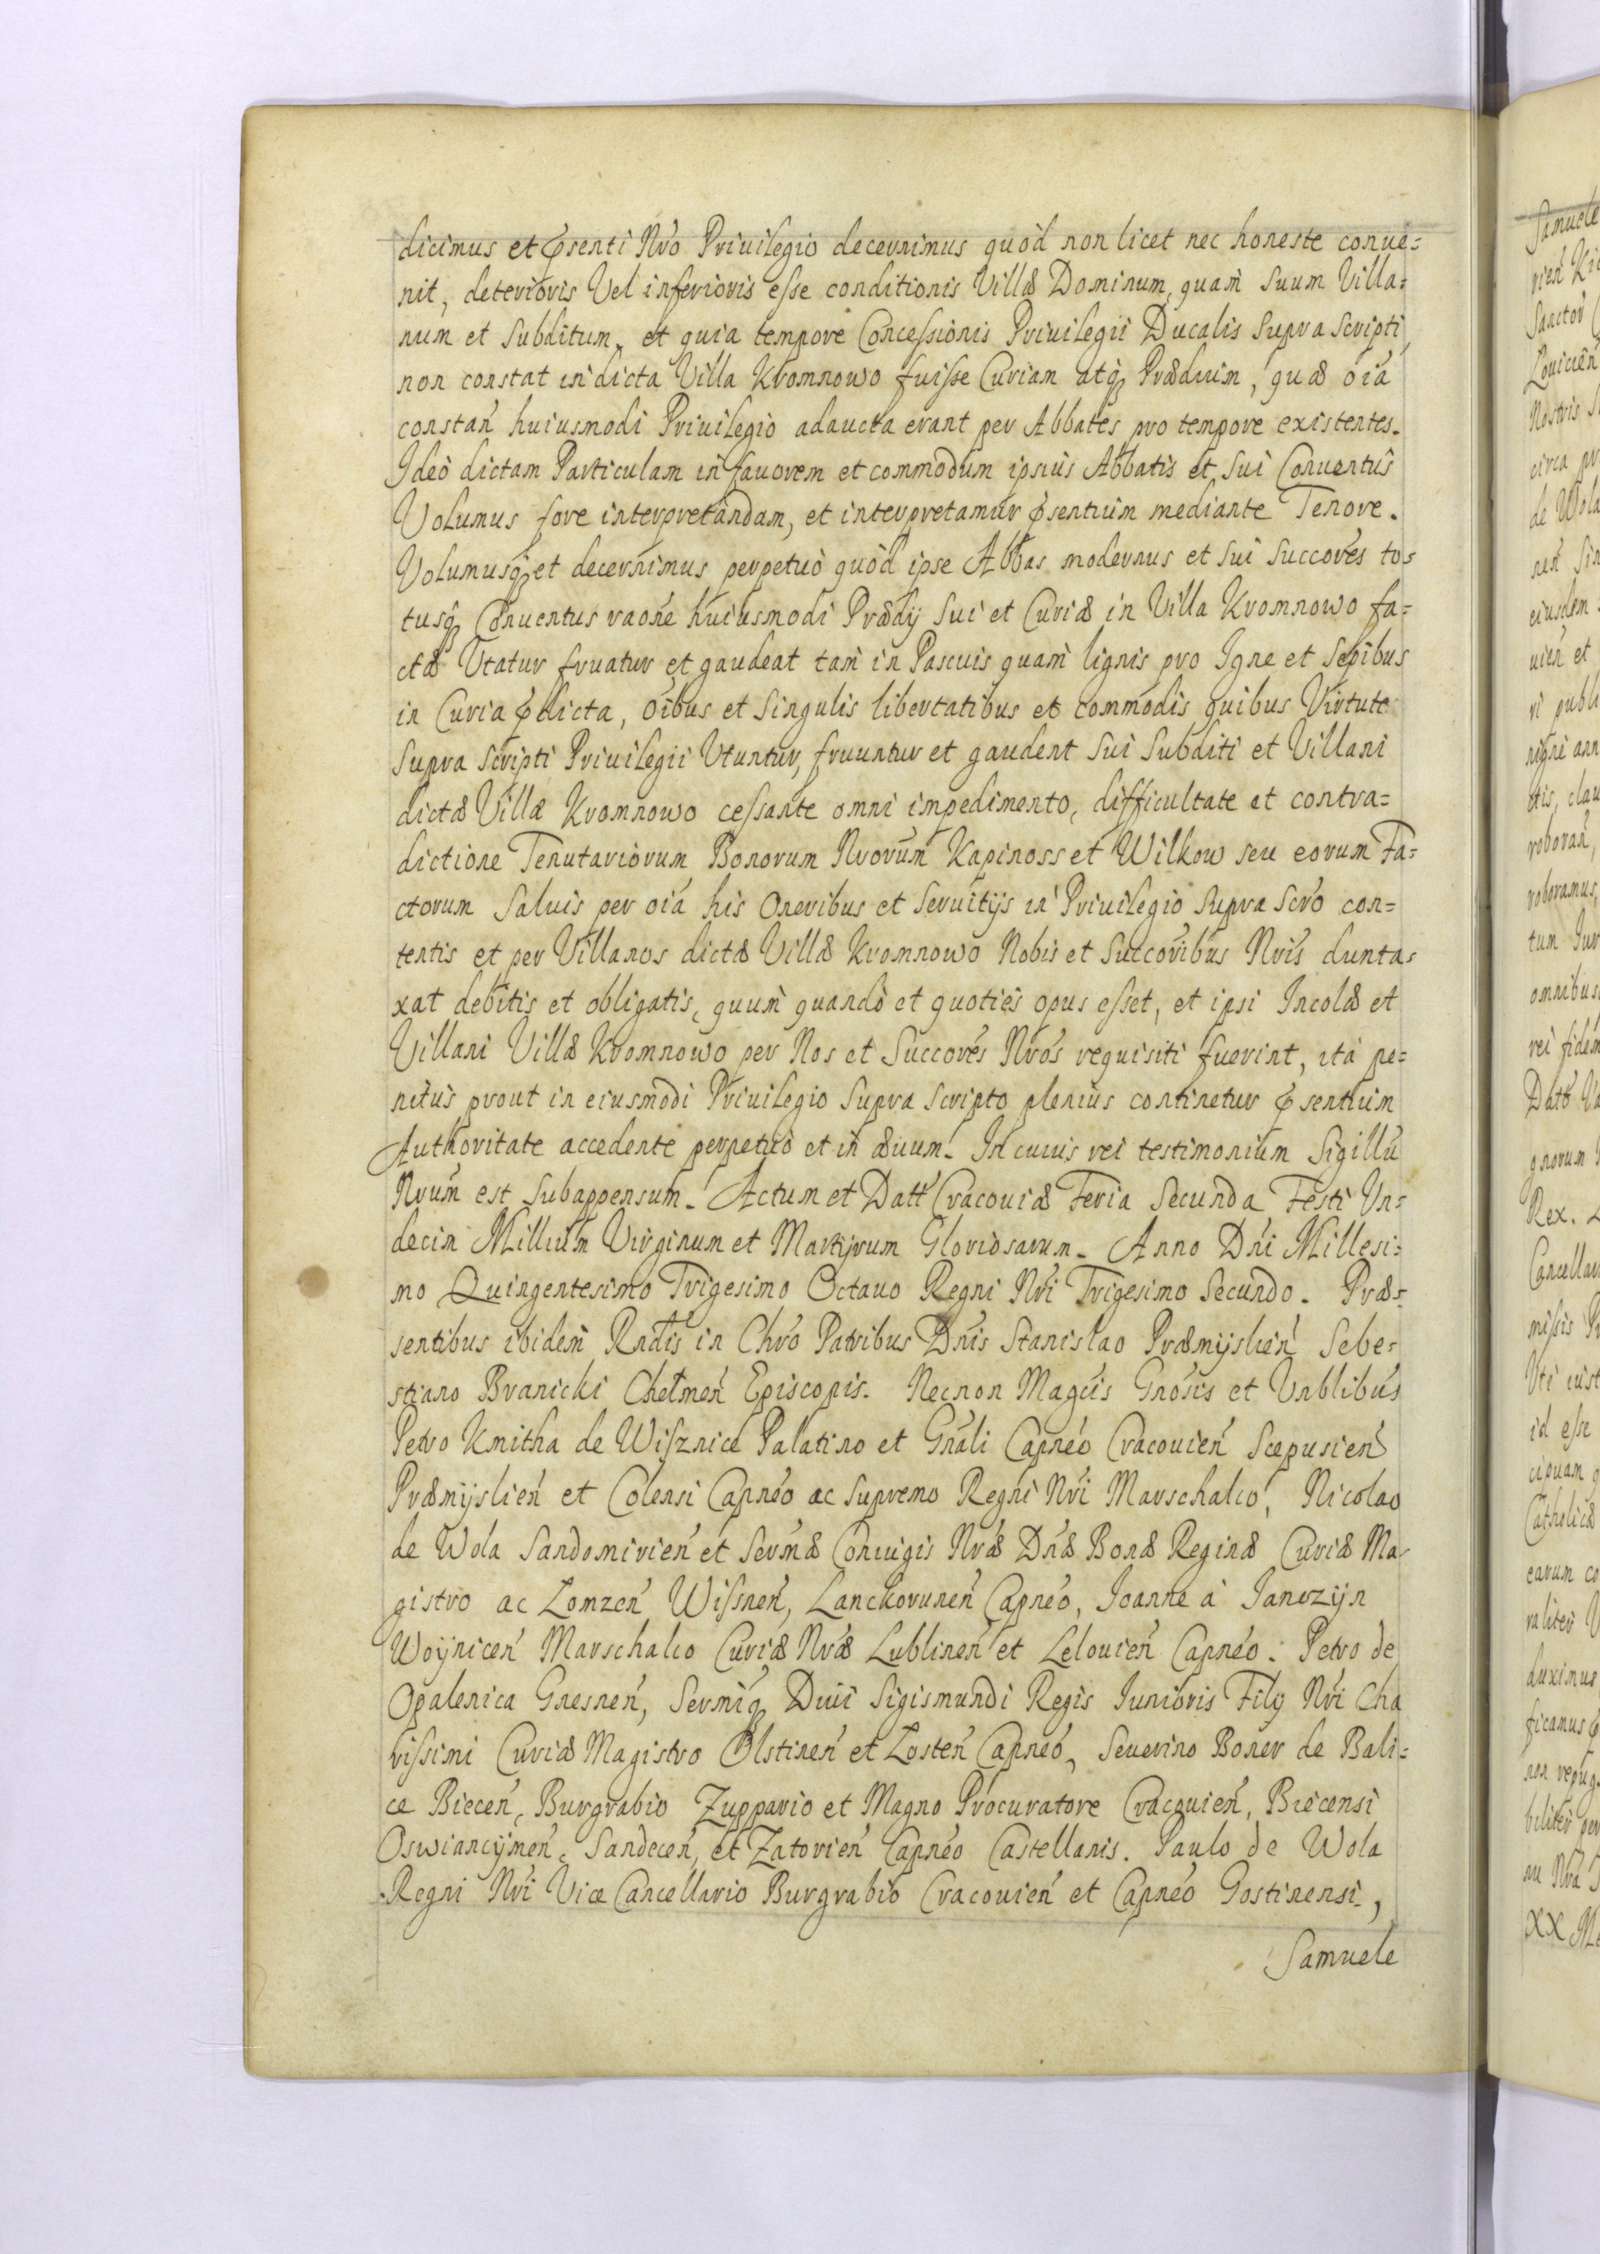 dicimus et p̃senti Nr̃o Priuilegio decernimus quòd non licet nec honeste conue=
nit, deterioris Vel inferioris esse conditionis Villæ Dominum, quam̀ suum Villa=
num et Subditum, et quia tempore Concessionis Priuilegii Ducalis Supra Scripti,
non constat in dicta Villa Kromnowo fuisse Curiam atq̃ Prædium, quæ oĩa
constañ huiusmodi Priuilegio adaucta erant per Abbates pro tempore existentes.
Ideò dictam Particulam in fauorem et commodum ipsius Abbatis et Sui Conuentus
Volumus fore interpretandam, et interpretamur p̃sentium mediante Tenore.
Volumusq̃ et decernimus perpetuò quòd ipse Abbas modernus et Sui Succoр̃es to=
tusq̃ Conuentus raõne huiusmodi Prædÿ Sui et Curiæ in Villa Kromnowo fa=
ctæ Vtatur fruatur et gaudeat tam̀ in Pascuis quam̀ lignis pro Igne et Sepibus
in Curia p̃dicta, oĩbus et Singulis libertatibus et commodis quibus Virtute
Supra Scripti Priuilegii Vtuntur, fruuntur et gaudent Sui Subditi et Villani
dictæ Villæ Kromnowo cessante omni impedimento, difficultate et contra=
dictione Tenutariorum Bonorum Nr̃orum Kapinoss et Wilkow seu eorum Fa=
ctorum Saluis per oĩa his Oneribus et Seruitÿs in Priuilegio Supra Scr̃o con=
tentis et per Villanos dictæ Villæ Kromnowo Nobis et Succor̃ibus Nr̃is dunta=
xat debitis et obligatis, quum̀ quandò et quoties opus esset, et ipsi Incolæ et
Villani Villæ Kromnowo per Nos et Succor̃es Nr̃os requisiti fuerint, ità pe=
nitus prout in eiusmodi Priuilegio Supra Scripto plenius continetur p̃sentium
Authoritate accedente perpetuò et in æuum. In cuius rei testimonium Sigillũ
Nr̃um est Subappensum. Actum et Datt̃ Cracouiæ Feria Secunda Festi Vn=
decim Millium Virginum et Martÿrum Gloriosarum. Anno Dñi Millesi=
mo Quingentesimo Trigesimo Octauo Regni Nr̃i Trigesimo Secundo. Præ=
sentibus ibidem Rndis in Chr̃o Patribus Dñis Stanislao Præmÿslieñ Sebe=
stiano Branicki Chełmeñ Episcopis. Necnon Magcis Gnosis et Vnblibus
Petro Kmitha de Wisznice Palatino et Gnãli Capnẽo Cracouieñ Scepusieñ
Præmÿslieñ et Colensi Capnẽo ac Supremo Regni Nr̃i Marschalco, Nicolao
de Wola Sandomirieñ et Serm̃æ Coniugis Nr̃æ Dñæ Bonæ Reginæ Curiæ Ma=
gistro ac Lomzeñ Wisneñ, Lanckoruneñ Capnẽo, Joanne à Janozÿn
Woÿniceñ Marschalco Curiæ Nr̃æ Lublineñ et Lelouieñ Capnẽo. Petro de
Opalenica Gnesneñ, Sermiq̃ Diui Sigismundi Regis Iunioris Filÿ Nr̃i Cha
rissimi Curiæ Magistro Olstineñ et Losteñ Capnẽo, Seuerino Boner de Bali=
ce Bieceñ, Burgrabio Zuppario et Magno Procuratore Cracouieñ, Biecensi
Oswiancÿmeñ, Sandeceñ, et Zatorieñ Capnẽo Castellanis. Paulo de Wola
Regni Nr̃i Vice Cancellario Burgrabio Cracouieñ et Capnẽo Gostinensi,
Samuele